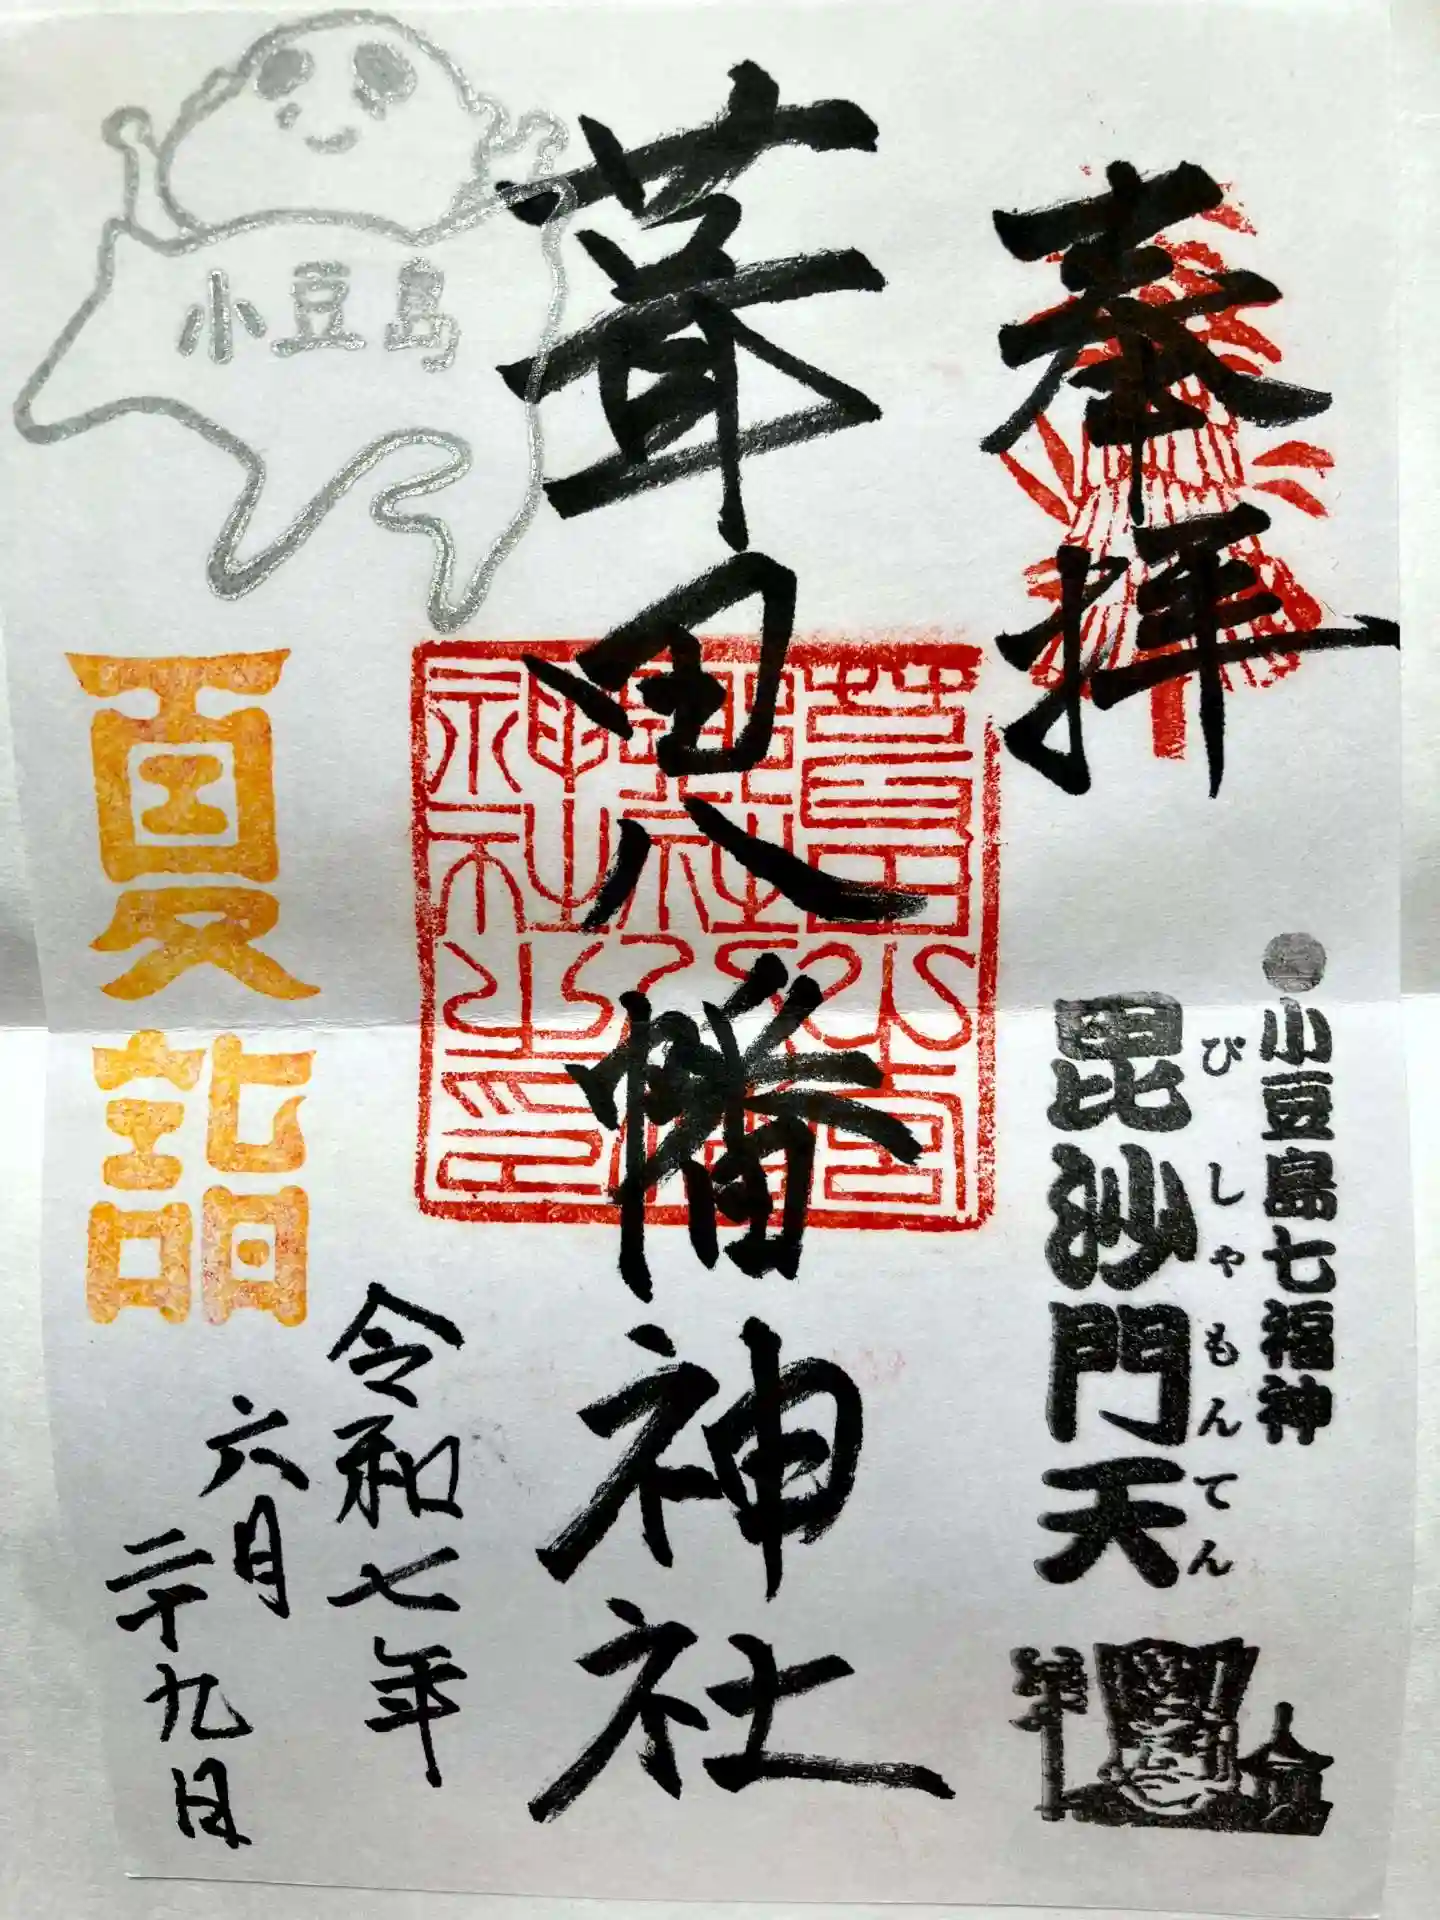 奉拝
小豆島七福神
びしゃもんてん
毘沙門天
葺田八幡神社
小豆島
夏詣
令和七年
六月
二十九日